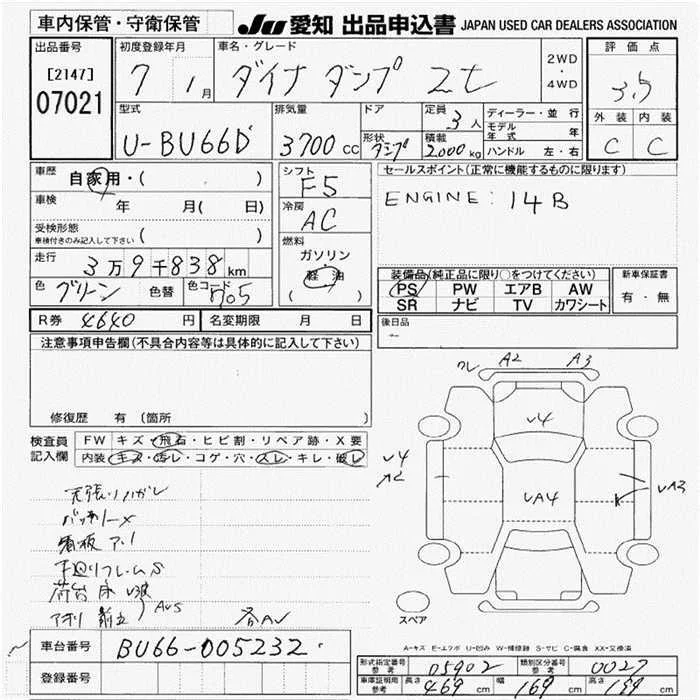 車内保管・守衛保管 JU 愛知 出品申込書 JAPAN USED CAR DEALERS ASSOCIATION
出品番号 初度登録年月 車名・グレード 2WD・4WD 評価点
[2147] 7 1月 ダイナ ダンプ 2t 3.5
07021
外装 内装
C C
型式 排気量 ドア 定員 3人 ディーラー・並行
U-BU66D 3700cc 形状 積載 2000kg モデル年式 年
ハンドル 左・右
車歴 自家用・( ) シフト F5 セールスポイント(正常に機能するものに限ります)
車検 年 月( 日) 冷房 AC ENGINE: 14B
受検形態 ( )
車検付きのみ記入して下さい
燃料 ガソリン
軽油
( )
走行 3万9千838km
色 グリーン 色替 色コード 705
装備品(純正品に限り○をつけてください) 新車保証書
PS PW エアB AW 有・無
SR ナビ TV カワシート
R券 4640円 名変期限 月 日 後日品
注意事項申告欄(不具合内容等は具体的に記入して下さい)
修復歴 有 (箇所
検査員記入欄 FW キズ・飛石・ヒビ割・リペア跡・X要
内装 キズ・汚レ・コゲ・穴・スレ・キレ・破レ
ワレ A2 A3
V4
V4
VA4
VA3
天張りハガレ
バッテリーX
看板アト
下廻りフレームS
荷台床 V波
AVS
各AV
スペア
A-キズ E-エクボ U-凹み W-補修跡 S-サビ C-腐食 XX-交換済
車台番号 BU66-005232
登録番号
形式指定番号 参考 05902 類別区分番号 参考 0027
車庫証明用 参考 長さ 469cm 幅 169cm 高さ 159cm